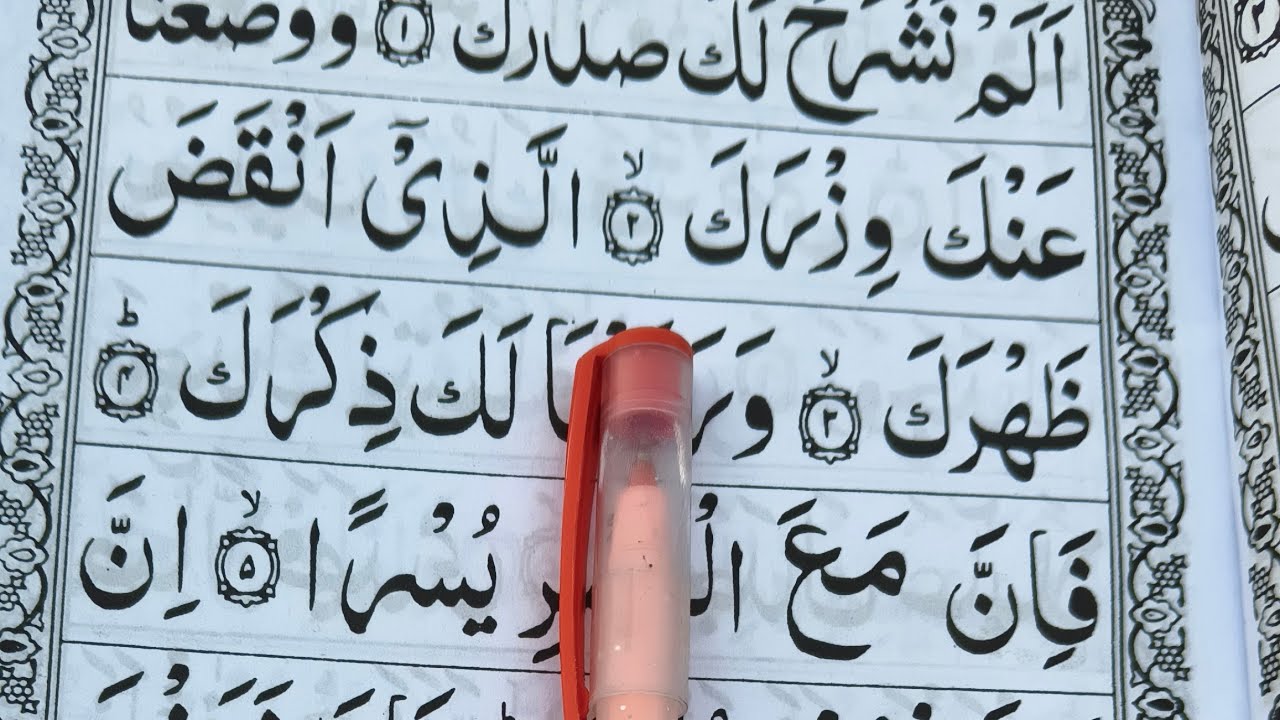 اَلَمْ نَشْرَحْ لَكَ صَدْرَكَ ۱ وَوَضَعْنَا
عَنْكَ وِزْرَكَ ۲ۙ الَّذِیْۤ اَنْقَضَ
ظَهْرَكَ ۳ۙ لَكَ ذِكْرَكَ ۴ؕ
فَاِنَّ مَعَ یُسْرًا ۵ۙ اِنَّ